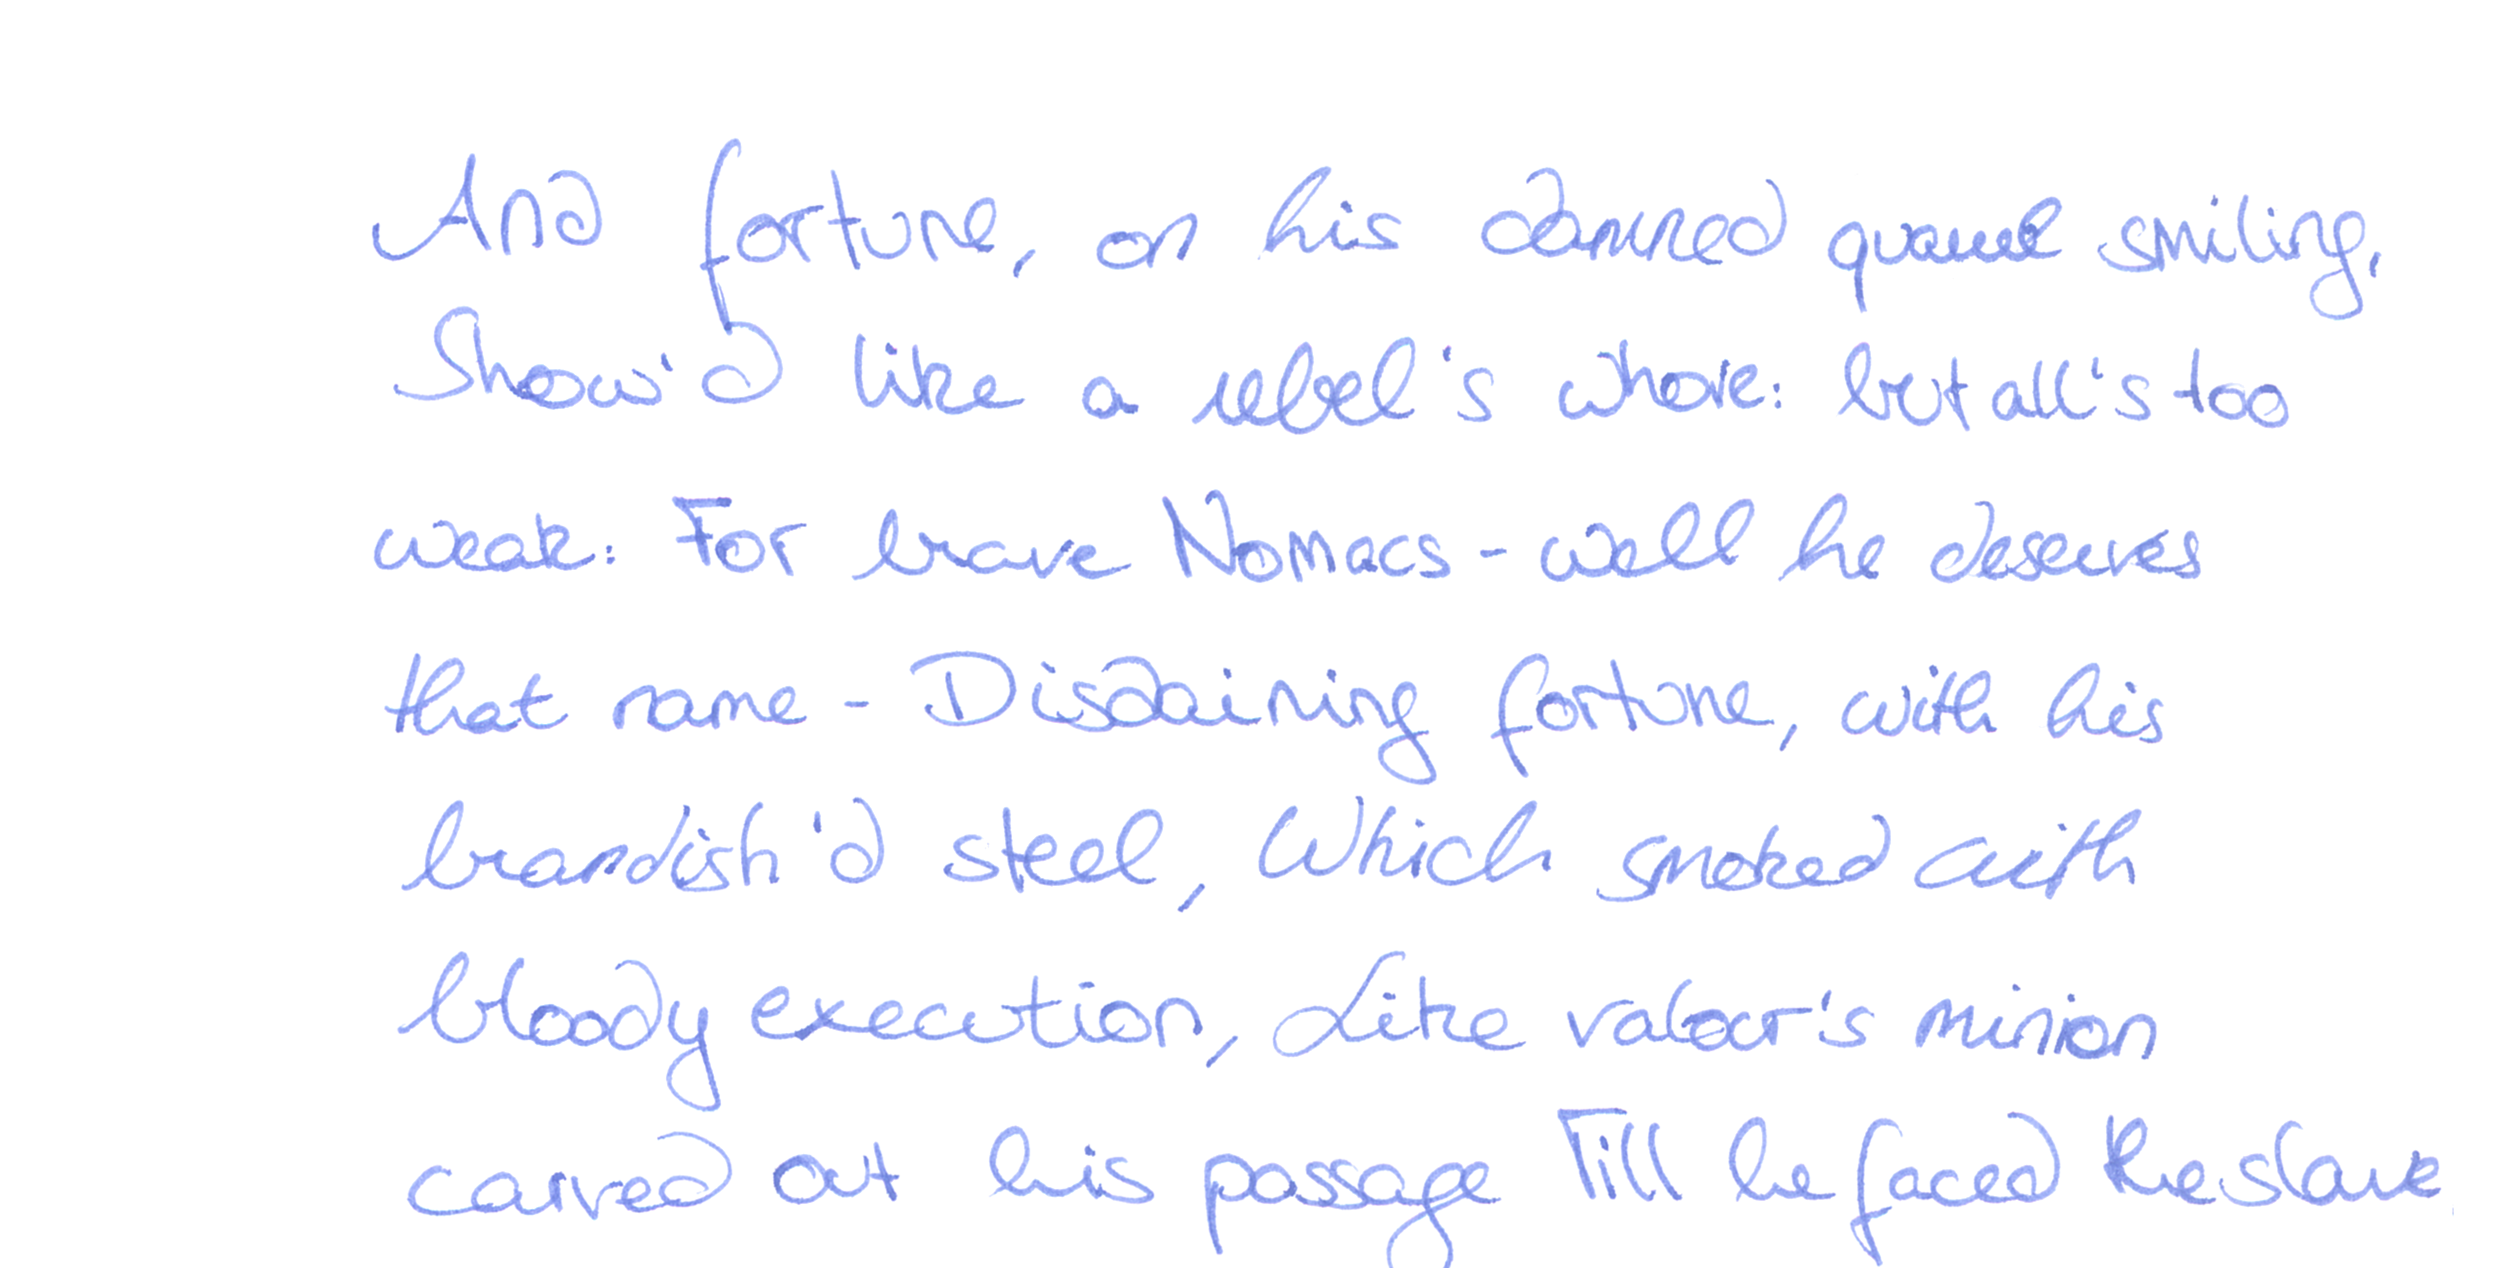 And fortune, on his damned quarrel smiling,
Show'd like a rebel's whore: but all's too
weak: For brave Nomacs - well he deserves
that name - Disdaining fortune, with his
brandish'd steel, Which smoked with
bloody execution, Like valour's minion
carved out his passage Till he faced the slave